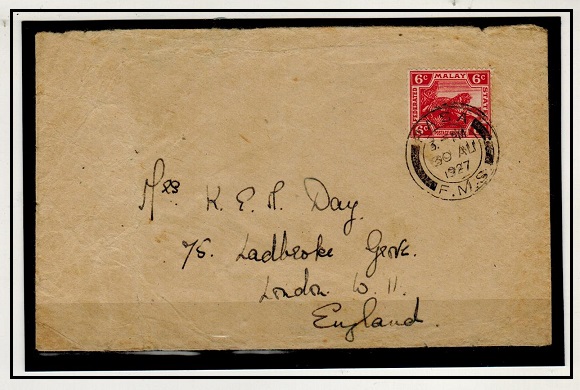 6c MALAY 6c
FEDERATED STATES
3. - PM
30 AU
1927
F.M.S
Mrs K. E. M. Day.
75. Ladbroke Grove.
London W. 11.
England.